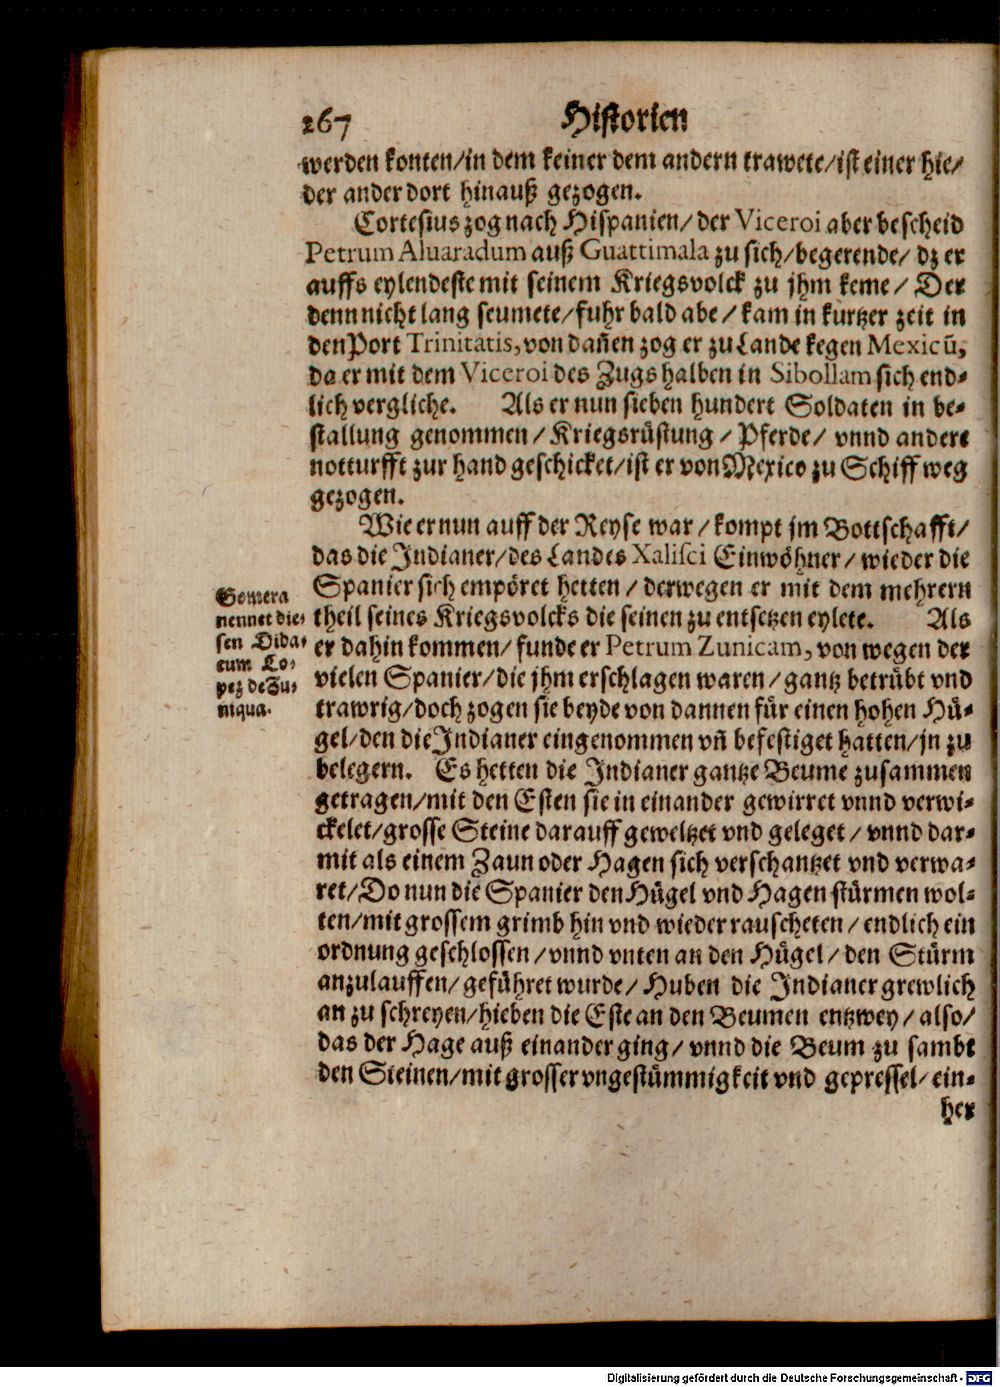 267 Historien
werden konten/in dem keiner dem andern trawete/ist einer hie/
der ander dort hinauß gezogen.
Cortesius zog nach Hispanien/ der Viceroi aber bescheid
Petrum Aluaradum auß Guattimala zu sich/begerende/ dz er
auffs eylendeste mit seinem Kriegsvolck zu jhm keme/ Der
denn nicht lang seumete/fuhr bald abe/ kam in kurtzer zeit in
den Port Trinitatis, von dañen zog er zu Lande kegen Mexicū,
da er mit dem Viceroi des Zugs halben in Sibollam sich end-
lich vergliche. Als er nun sieben hundert Soldaten in be-
stallung genommen/ Kriegsrüstung/ Pferde/ vnnd andere
notturfft zur hand geschicket/ist er von Mexico zu Schiff weg
gezogen.
Wie er nun auff der Reyse war/ kompt jm Bottschafft/
das die Indianer/des Landes Xalisci Einwöhner/ wieder die
Spanier sich empöret hetten/ derwegen er mit dem mehrern
theil seines Kriegsvolcks die seinen zu entsetzen eylete. Als
er dahin kommen/ funde er Petrum Zunicam, von wegen der
vielen Spanier/die jhm erschlagen waren/ gantz betrübt vnd
trawrig/doch zogen sie beyde von dannen für einen hohen Hü-
gel/den die Indianer eingenommen vñ befestiget hatten/jn zu
belegern. Es hetten die Indianer gantze Beume zusammen
getragen/mit den Esten sie in einander gewirret vnnd verwi-
ckelet/grosse Steine darauff geweltzet vnd geleget/ vnnd dar-
mit als einem Zaun oder Hagen sich verschantzet vnd verwa-
ret/Do nun die Spanier den Hügel vnd Hagen stürmen wol-
ten/mit grossem grimb hin vnd wieder rauscheten/ endlich ein
ordnung geschlossen/vnnd vnten an den Hügel/ den Stürm
anzulauffen/geführet wurde/ Huben die Indianer grewlich
an zu schreyen/hieben die Este an den Beumen entzwey/ also/
das der Hage auß einander ging/ vnnd die Beum zu sambt
den Steinen/mit grosser vngestümmigkeit vnd gepressel/ein-
her
Gomera
nennet die-
sen Dida-
cum Lo-
pez de Zu-
niqua.
Digitalisierung gefördert durch die Deutsche Forschungsgemeinschaft - DFG